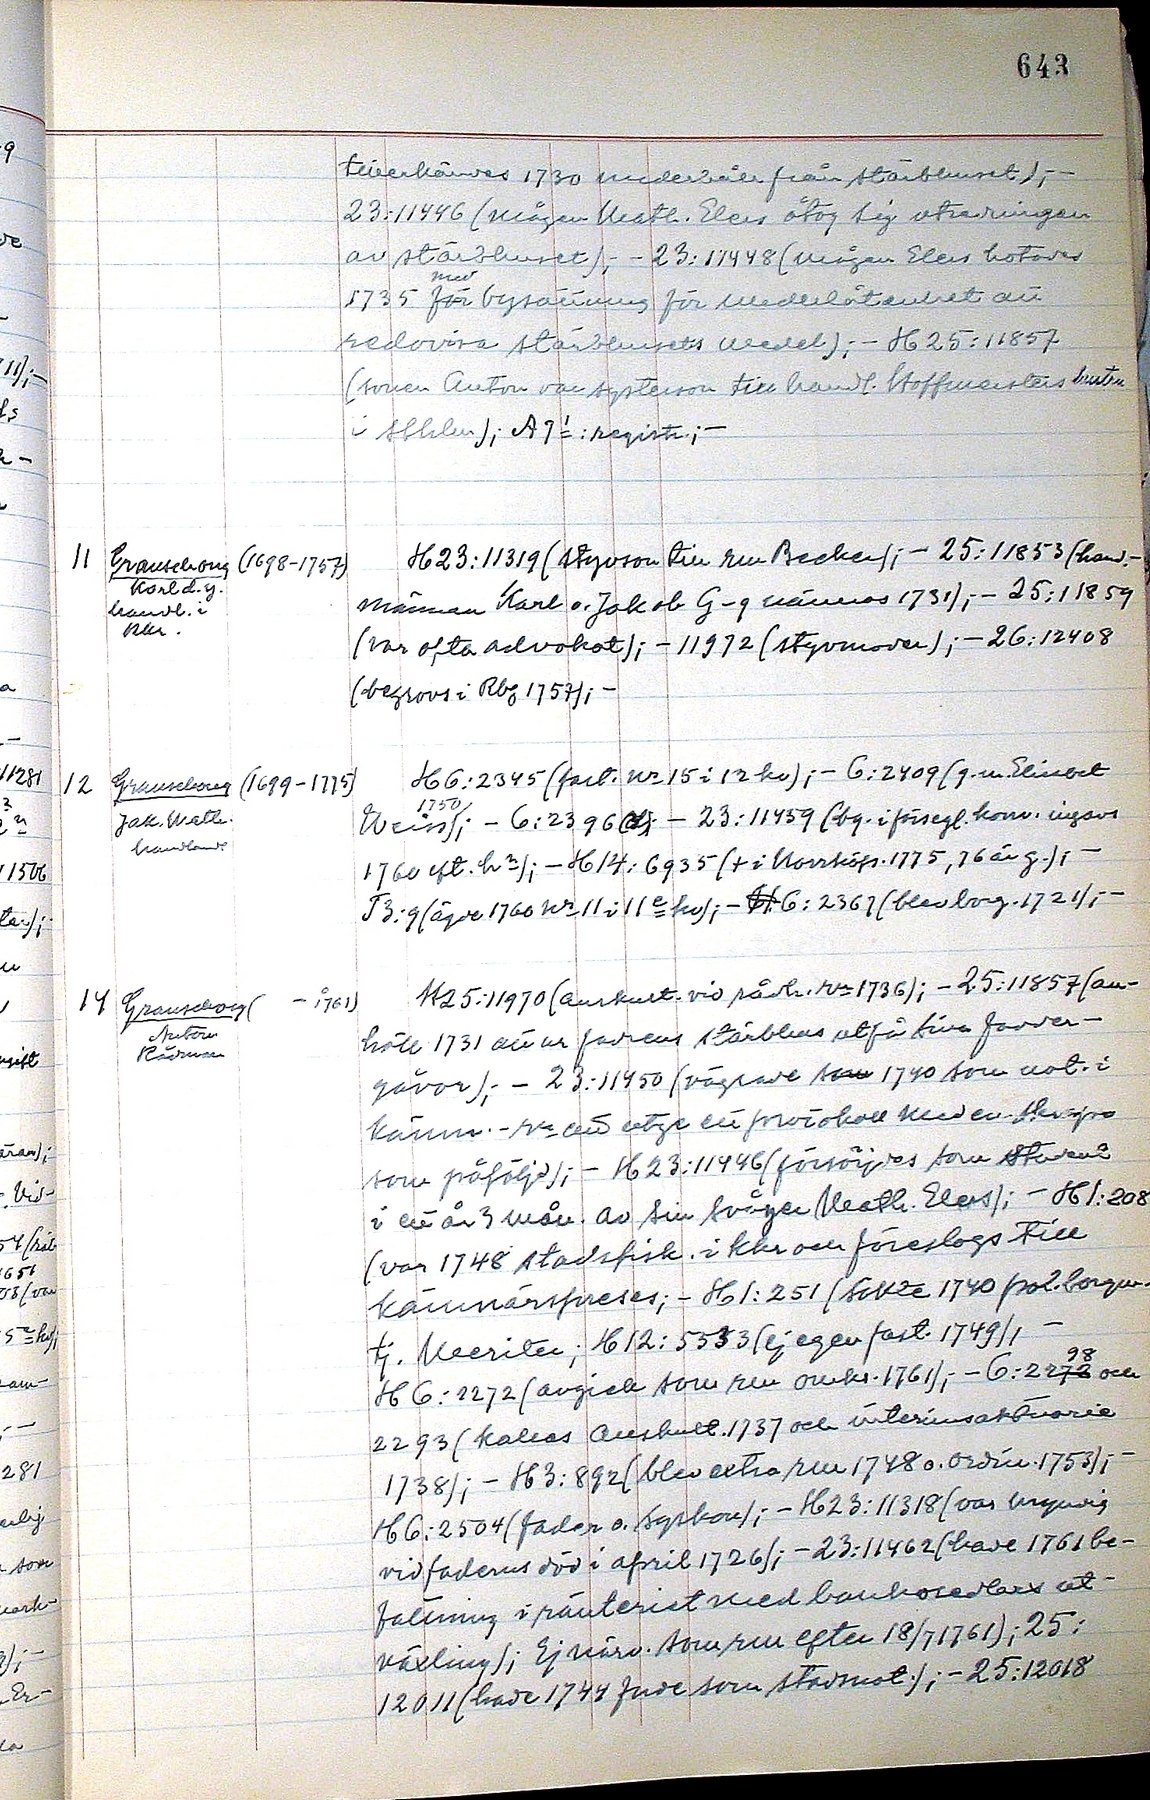 643
tillerkändes 1730 underhåll från stärbhuset); -
23:11446 (mågen Math. Elers åtog sig utredningen
av stärbhuset); - 23:11448 (mågen Elers hotades
med
1735 för bysättning för underlåtenhet att
redovisa stärbhusets medel); - H25:11857
(sonen Anton var systerson till handl. Hoffmeisters hustru
i Sthlm); A 7 1: registr.; -
11 Grauschoug (1698-1757) H23:11319 (styvson till rm Becker); - 25:11853 (hand-
Karl d.y. männen Karl o. Jakob G-g nämnas 1731); - 25:11859
handl. i (var ofta advokat); - 11972 (styvmoder); - 26:12408
Kkr.
(begrovs i Rbg 1757); -
12 Grauschoug (1699-1775) H6:2345 (fast. nr 15 i 12 kv); - 6:2409 (g.m. Elisabet
1750
Jak. Math. Weiss); - 6:2396; - 23:11459 (bg. i försegl. konv. ingavs
handlande 1760 eft. hn); - H14:6935 (+ i Norrköp. 1775, 76 år g.); -
T3:9 (ägde 1760 nr 11 i 11e kv); - H6:2367 (blev borg. 1721); -
14 Grauschoug ( - i 1761) H25:11970 (auskult. vid rådh.rn 1736); - 25:11857 (an-
Anton höll 1731 att ur fadrens stärbhus utfå sina fadder-
Rådman gåvor); - 23:11450 (vägrade som 1740 som not. i
kämn.-rn att utge ett protokoll med en
som påföljd); - H23:11446 (försörjdes som student
i ett år 3 mån. av sin svåger Math. Elers); - H1:208
(var 1748 stadsfisk. i Kkr och föreslogs till
kämnärspreses; - H1:251 (sökte 1740 pol. borgm.
tj. Meriter; H12:5553 (ej egen fast. 1749); -
98
H6:2272 (avgick som rm omkr. 1761); - 6:2272 och
2293 (kallas Auskult. 1737 och interimsaktuarie
1738); - H3:892 (blev extra rm 1748 o. ordin. 1753); -
H6:2504 (fader o. syskon); - H23:11318 (var omyndig
vid faderns död i april 1726); - 23:11462 (hade 1761 be-
fattning i ränteriet med bankosedlars ut-
växling); Ej närv. som rm efter 18/7 1761); 25:
12011 (hade 1744 förde som stadsnot.); - 25:12018